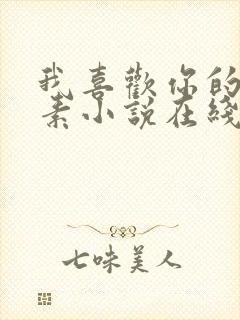 我喜歡你的
素小說在綫
七味美人